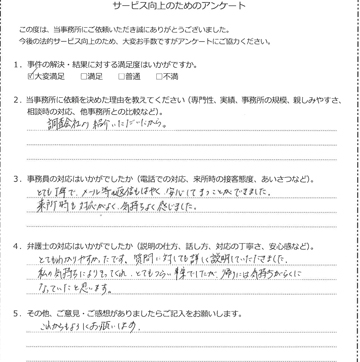 サービス向上のためのアンケート
この度は、当事務所にご依頼いただき誠にありがとうございました。
今後の法的サービス向上のため、大変お手数ですがアンケートにご協力ください。
1．事件の解決・結果に対する満足度はいかがですか。
☑大変満足 □満足 □普通 □不満
2．当事務所に依頼を決めた理由を教えてください（専門性、実績、事務所の規模、親しみやすさ、
相談時の対応、他事務所との比較など）。
調査会社より紹介いただいたから。
3．事務員の対応はいかがでしたか（電話での対応、来所時の接客態度、あいさつなど）。
とても丁寧で、メール等の返信もはやく、安心してまつことができました。
来所時も対応がよく、気持ちよく感じました。
4．弁護士の対応はいかがでしたか（説明の仕方、話し方、対応の丁寧さ、安心感など）。
とてもわかりやすかったです。質問に対しても詳しく説明していただきました。
私の気持ちによりそってくれ、とてもつらい事でしたが、帰りには気持ちがらくに
なっていたと思います。
5．その他、ご意見・ご感想がありましたらご記入をお願いします。
これからもよろしくお願いします。